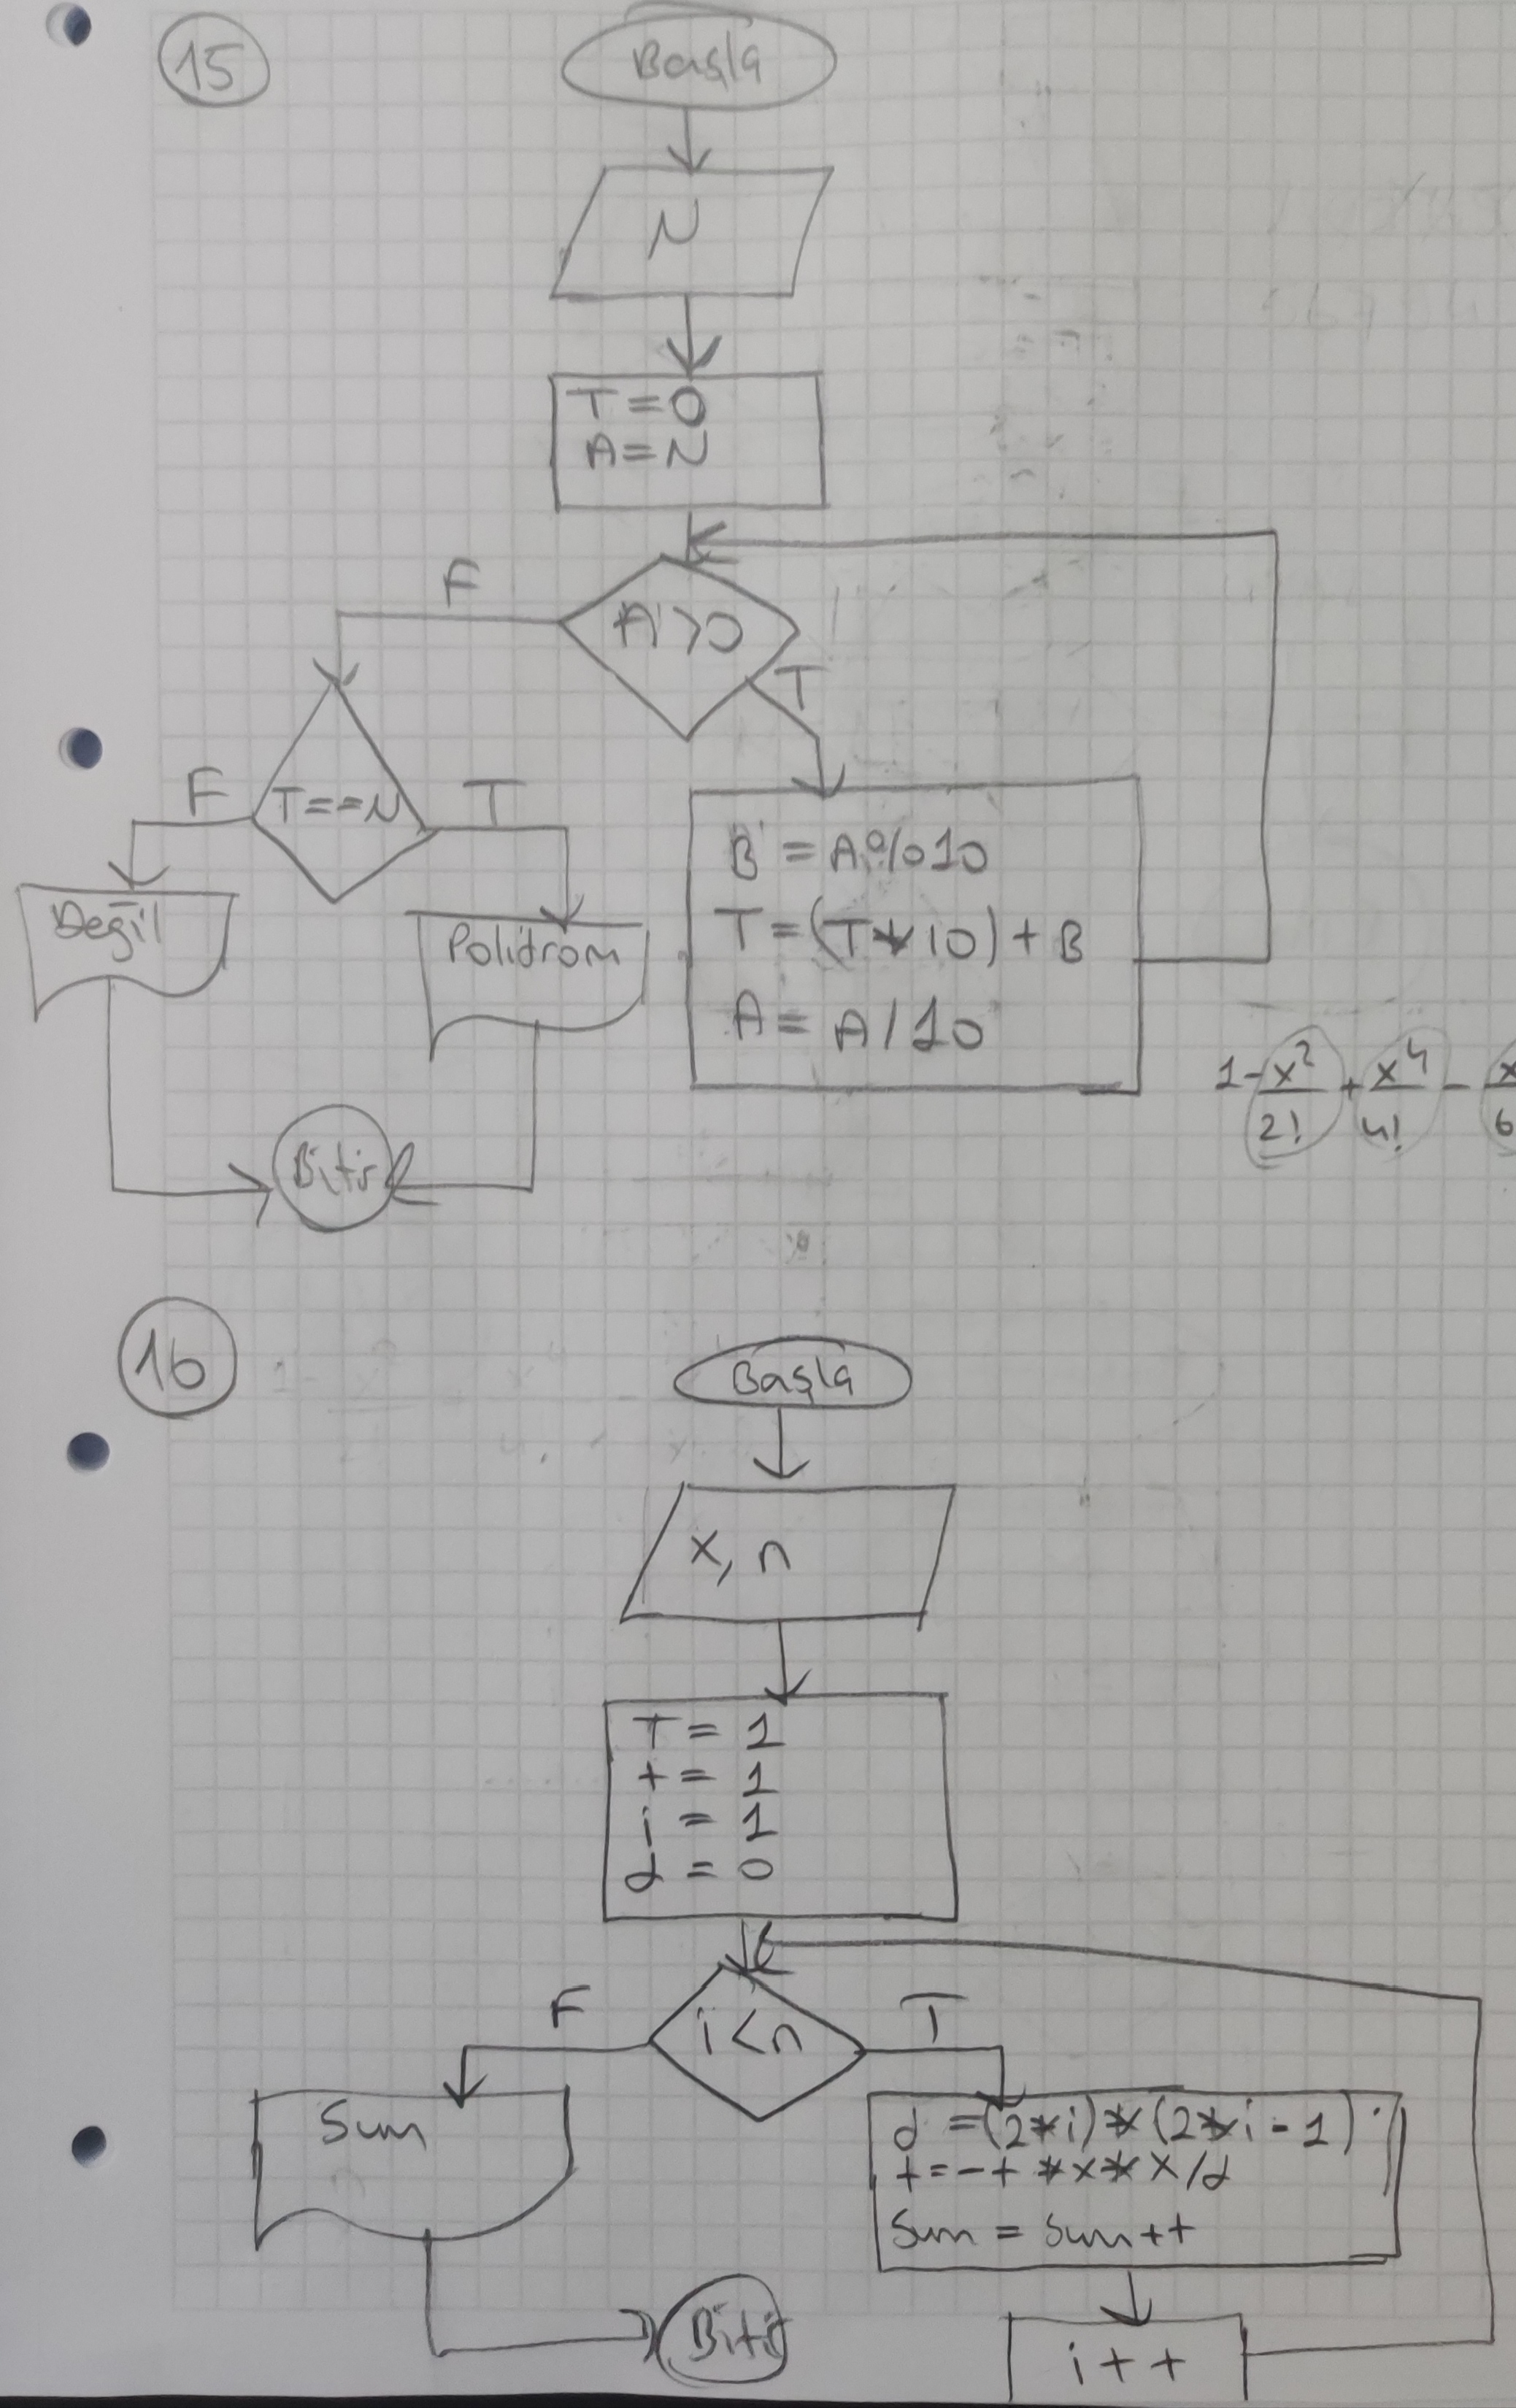 15
Başla
N
T=0
A=N
A>0
F
T
T==N
F
T
Değil
Polidrom
B = A%10
T=(T*10)+B
A = A/10
Bitir
1-x²/2! + x⁴/4! - x
6
16
Başla
x, n
T = 1
t = 1
i = 1
d = 0
i<n
F
T
Sum
d =(2*i)*(2*i-1)
t=-t*x*x/d
Sum = Sum+t
i++
Bitir